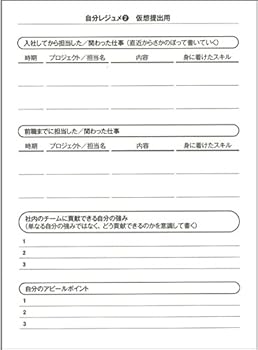 自分レジュメ❷　仮想提出用
入社してから担当した／関わった仕事（直近からさかのぼって書いていく）
時期　プロジェクト／担当名　内容　身に着けたスキル
前職までに担当した／関わった仕事
時期　プロジェクト／担当名　内容　身に着けたスキル
社内のチームに貢献できる自分の強み
（単なる自分の強みではなく、どう貢献できるのかを意識して書く）
1
2
3
自分のアピールポイント
1
2
3